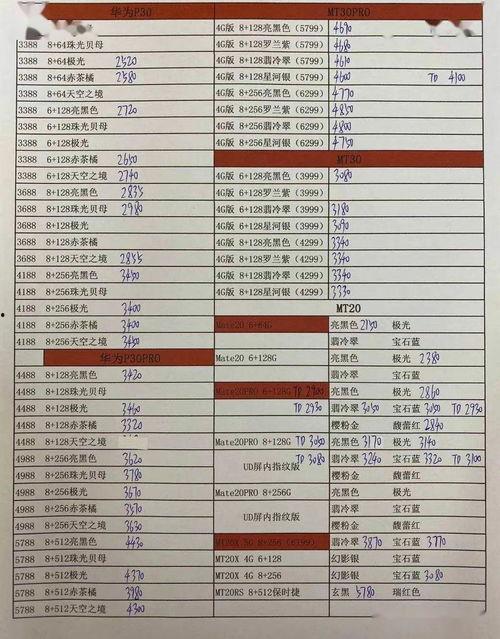 华为P30
3388 8+64珠光贝母
3388 8+64极光 2520
3388 8+64赤茶橘 2580
3388 8+64天空之境
3388 6+128亮黑色 2720
3388 6+128珠光贝母
3388 6+128极光
3388 6+128赤茶橘 2650
3388 6+128天空之境 2740
3688 8+128亮黑色 2835
3688 8+128珠光贝母 2980
3688 8+128极光
3688 8+128赤茶橘
3688 8+128天空之境 2855
4188 8+256亮黑色 3450
4188 8+256珠光贝母
4188 8+256极光 3400
4188 8+256赤茶橘 3400
4188 8+256天空之境 3450
华为P30PRO
4488 8+128亮黑色 3420
4488 8+128珠光贝母
4488 8+128极光 3460
4488 8+128赤茶橘 3320
4488 8+128天空之境
4988 8+256亮黑色 3620
4988 8+256珠光贝母 3780
4988 8+256极光 3670
4988 8+256赤茶橘 3570
4988 8+256天空之境 3630
5788 8+512亮黑色 4430
5788 8+512珠光贝母
5788 8+512极光 4370
5788 8+512赤茶橘 3980
5788 8+512天空之境 4300
MT30PRO
4G版 8+128亮黑色(5799) 4690
4G版 8+128罗兰紫(5799) 4680
4G版 8+128翡冷翠(5799) 4610
4G版 8+128星河银(5799) 4600 TD 4100
4G版 8+256亮黑色(6299) 4770
4G版 8+256罗兰紫(6299) 4850
4G版 8+256翡冷翠(6299) 4800
4G版 8+256星河银(6299) 4750
MT30
4G版 6+128亮黑色(3999) 3080
4G版 6+128罗兰紫(3999)
4G版 6+128翡冷翠(3999) 3180
4G版 6+128星河银(3999) 3090
4G版 8+128亮黑色(4299) 3340
4G版 8+128罗兰紫(4299) 3340
4G版 8+128翡冷翠(4299) 3340
4G版 8+128星河银(4299) 3330
MT20
Mate20 6+64G 亮黑色 2150 极光
翡冷翠 宝石蓝
Mate20 6+128G 亮黑色 极光 2380
翡冷翠 宝石蓝
Mate20PRO 6+128G TD 2900 亮黑色 极光 2860
TD 2930 翡冷翠 3050 宝石蓝 3050 TD 2930
樱粉金 馥蕾红 2840
Mate20PRO 8+128G TD 3050 亮黑色 3170 极光 3140
UD屏内指纹版 TD 3080 翡冷翠 3240 宝石蓝 3320 TD 3100
樱粉金 馥蕾红
Mate20PRO 8+256G 亮黑色 极光
UD屏内指纹版 翡冷翠 宝石蓝
樱粉金 馥蕾红
MT20X 5G 8+256 (6399) 翡冷翠 3870 宝石蓝 3770
MT20X 4G 6+128 幻影银 宝石蓝
MT20X 4G 8+256 幻影银 宝石蓝 3080
MT20RS 8+512保时捷 玄黑 5780 瑞红色